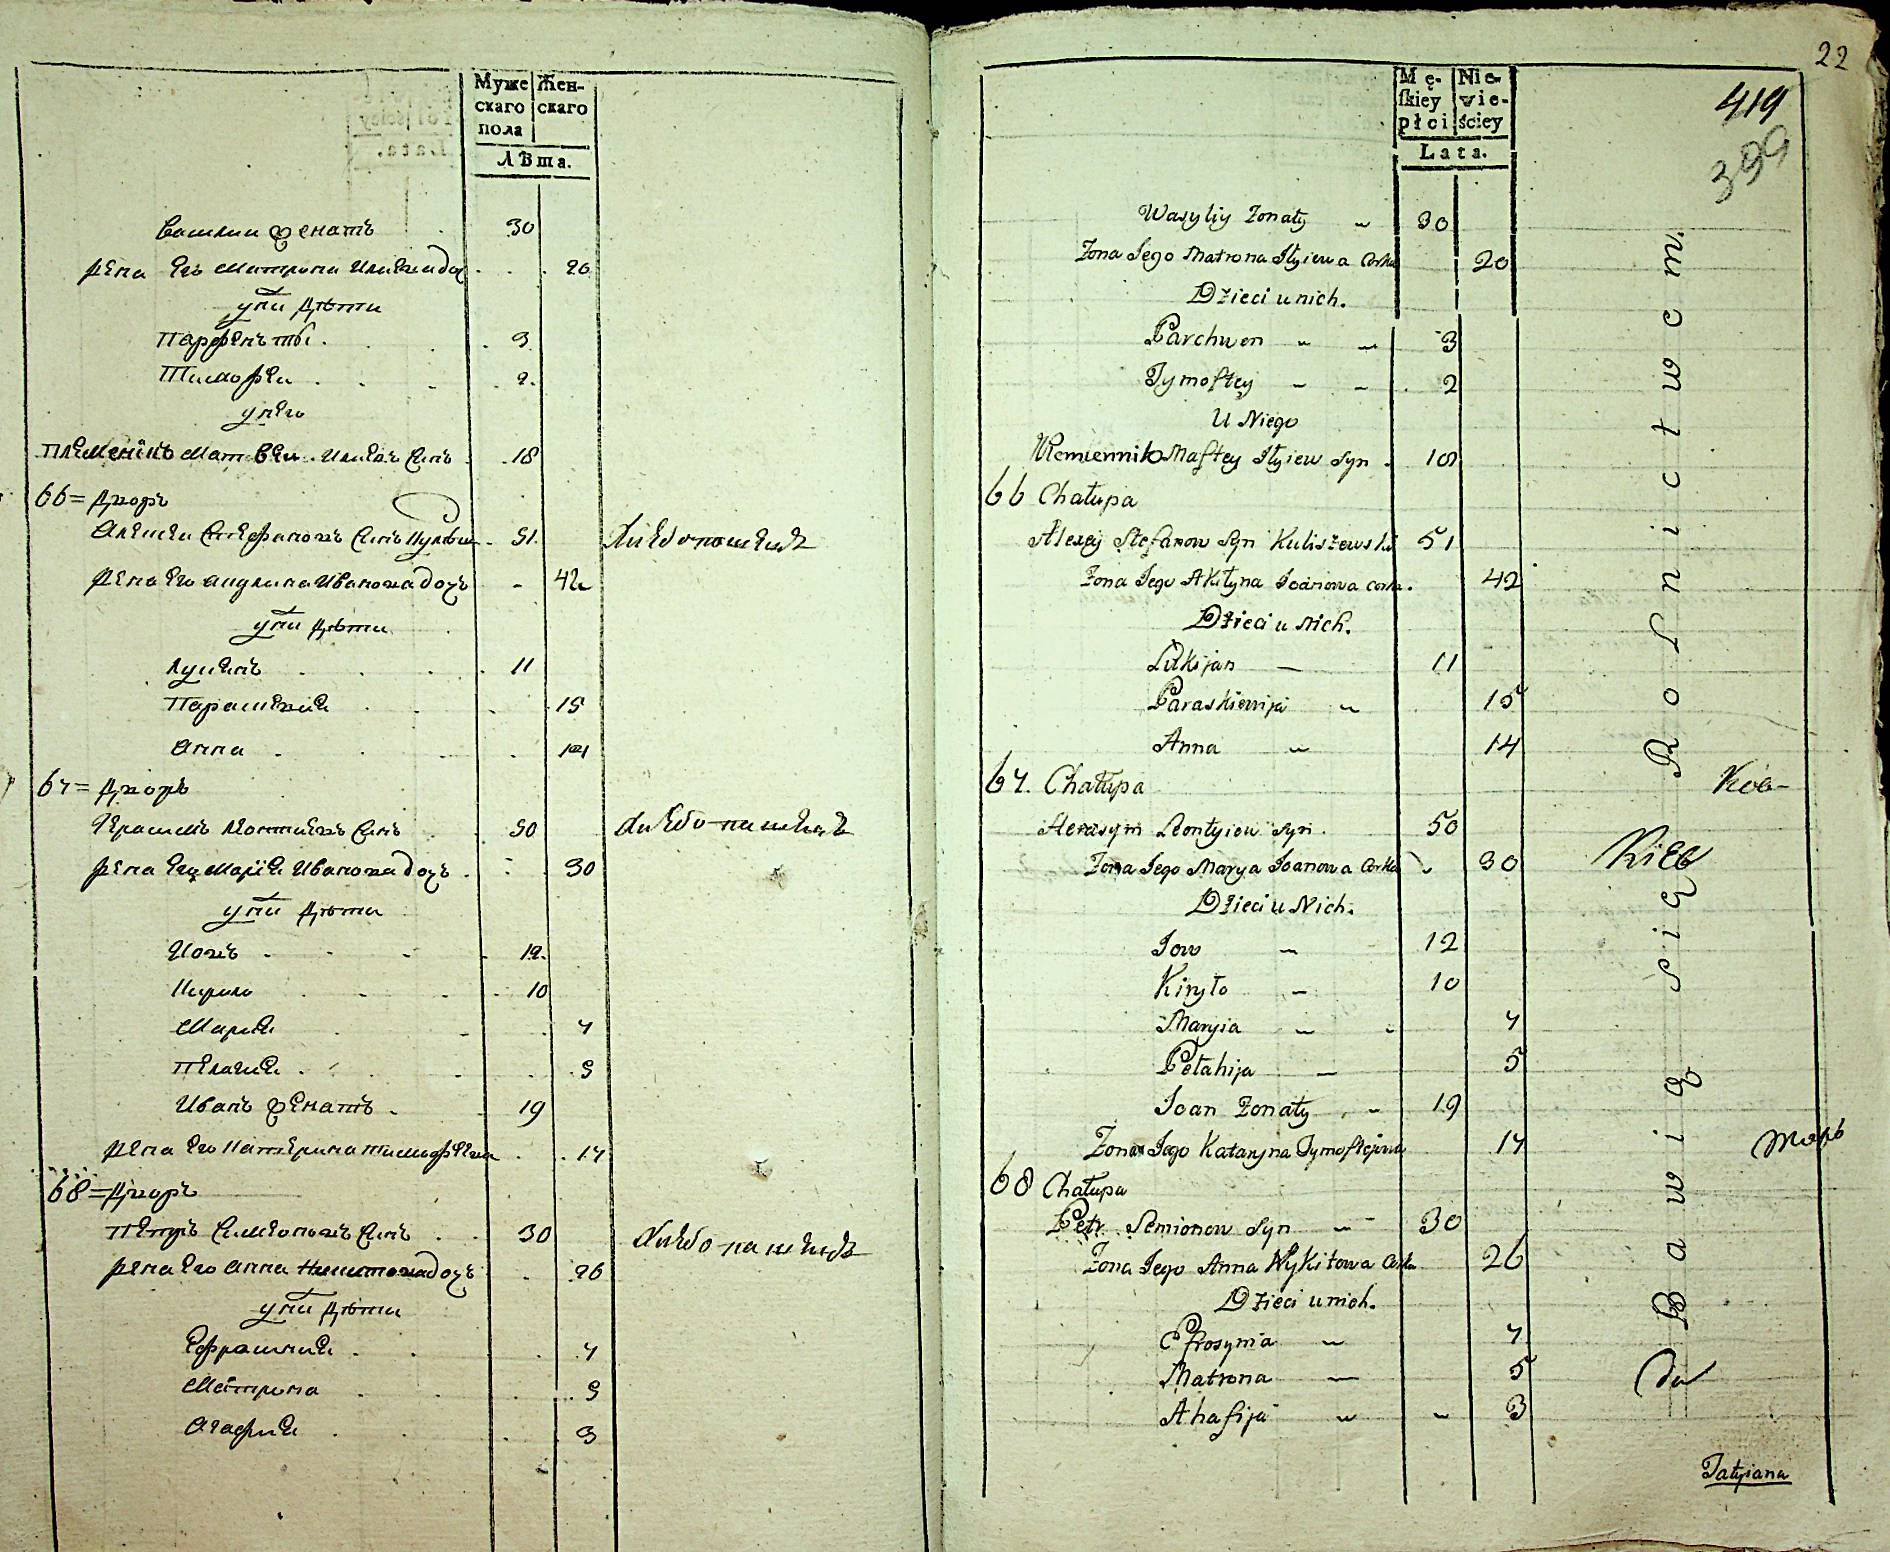 Муже Жен-
скаго скаго
пола
Лѣта.
Василий женатъ 30
жена Его Матрона Илиева доч 26
у них Дѣти
Парфенътий 3
Тимофей 2
у него
племенникъ Матвей Илиевъ Синъ 18
66 = Дворъ
Алексей Стефановъ Синъ 51 хлебопашецъ
жена Его Акилина Иванова дочъ 42
у них Дѣти
Лукянъ 11
Параскевия 15
Анна 14
67 = Дворъ
Герасимъ Леонтиевъ Синъ 50 хлебопашецъ
жена Его Мария Иванова дочъ 30
у них Дѣти
Иовъ 12
Кирило 10
Мария 7
Пелагия 5
Иванъ женатъ 19
жена Его Катерина Тимофеева 17
68 = Дворъ
Петръ Симеоновъ Синъ 30 хлебопашецъ
жена Его Анна Никитова дочъ 26
у них Дѣти
Ефросиния 7
Матрона 5
Агафия 3
22
Mę- Nie-
skiey wie-
płci ściey
Lata.
419
399
Wasyliy Żonaty 30
Żona Jego Matrona Iłyiewa Corka 20
Dzieci u nich.
Parchwen 3
Tymoftey 2
U Niego
Plemiennik Maftey Iłyiew Syn 18
66 Chałupa
Alexey Stefanow Syn Kuliszewski 51
Żona Jego Akiłyna Joanowa Corka 42
Dzieci u Nich.
Łukijan 11
Paraskiewija 15
Anna 14
67. Chałupa
Herasym Leontyiew Syn 50
Żona Jego Marya Joanowa Corka 30
Dzieci u Nich.
Jow 12
Kiryło 10
Maryia 7
Pełahija 5
Joan Żonaty 19
Żona Jego Kataryna Tymoftejewa 17
68 Chałupa
Petr Semionow Syn 30
Żona Jego Anna Nykitowa Corka 26
Dzieci u nich.
Efrosynia 7
Matrona 5
Ahafija 3
Bawią się Rolnictwem.
Tatyiana